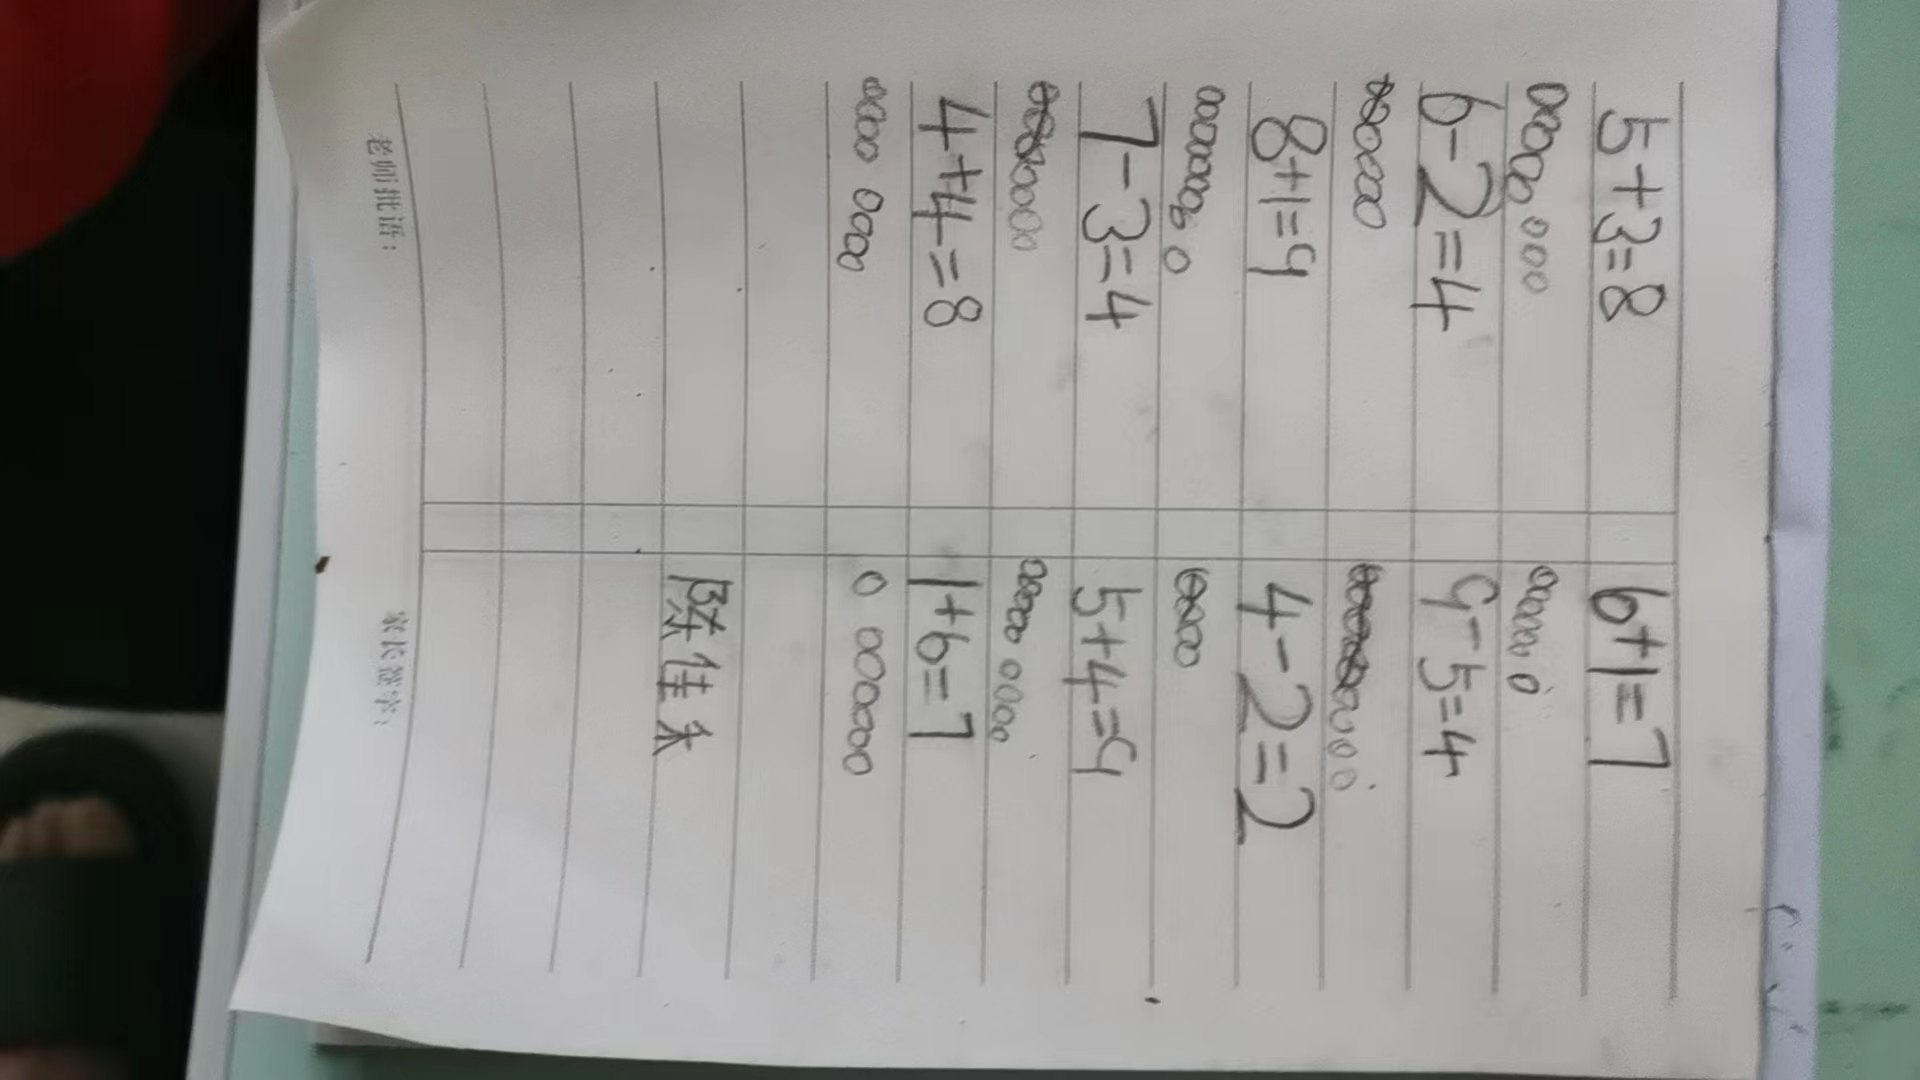 5+3=8 6+1=7
6-2=4 9-5=4
8+1=9 4-2=2
7-3=4 5+4=9
4+4=8 1+6=7
陈佳禾
老师批语： 家长签字：